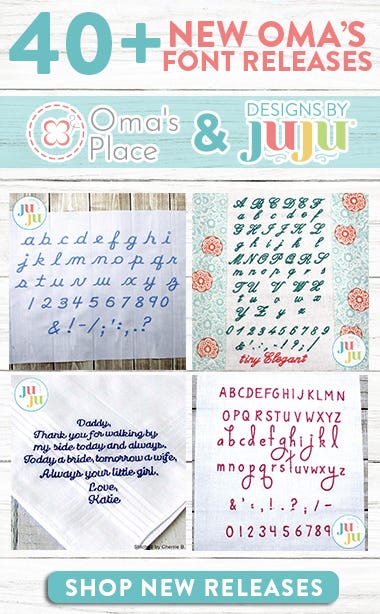 40+ NEW OMA'S
FONT RELEASES
Oma's
Place
&
DESIGNS BY
JUJU®
JU
JU
a b c d e f g h i
j k l m n o p q r
s t u v w x y z
1 2 3 4 5 6 7 8 9 0
& ! - / ; ' : , . ?
A B C D E F
a b c d e f
G H I J K L
g h i j k l
M N O P Q R
m n o p q r
tiny Elegant
JU
JU
JU
JU
Daddy,
Thank you for walking by
my side today and always.
Today a bride, tomorrow a wife,
Always your little girl.
Love,
Katie
Stitched by Cherrie B.
A B C D E F G H I J K L M N
O P Q R S T U V W X Y Z
a b c d e f g h i j k l
m n o p q r s t u v w x y z
& ' : , ! . ? ; / -
0 1 2 3 4 5 6 7 8 9
JU
JU
SHOP NEW RELEASES